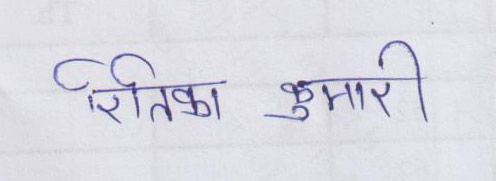 रितिका कुमारी